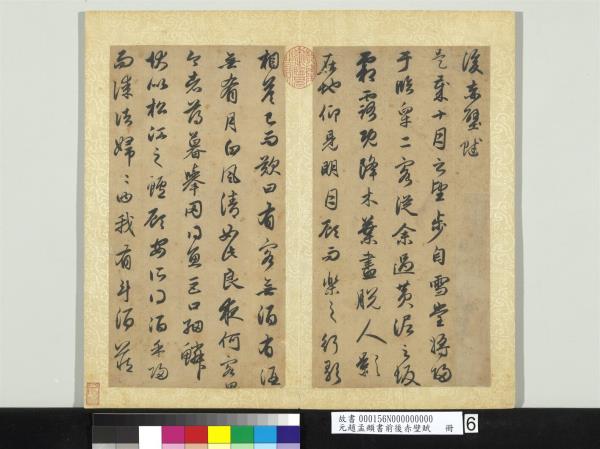 後赤壁賦
是歲十月之望步自雪堂將歸
于臨皋二客從余過黃泥之坂
霜露既降木葉盡脫人影
在地仰見明月顧而樂之行歌
相答已而歎曰有客無酒有酒
無肴月白風清如此良夜何客曰
今者薄暮舉網得魚巨口細鱗
狀似松江之鱸顧安所得酒乎歸
而謀諸婦〻曰我有斗酒藏
故書 000156N000000000
元趙孟頫書前後赤壁賦 冊
6